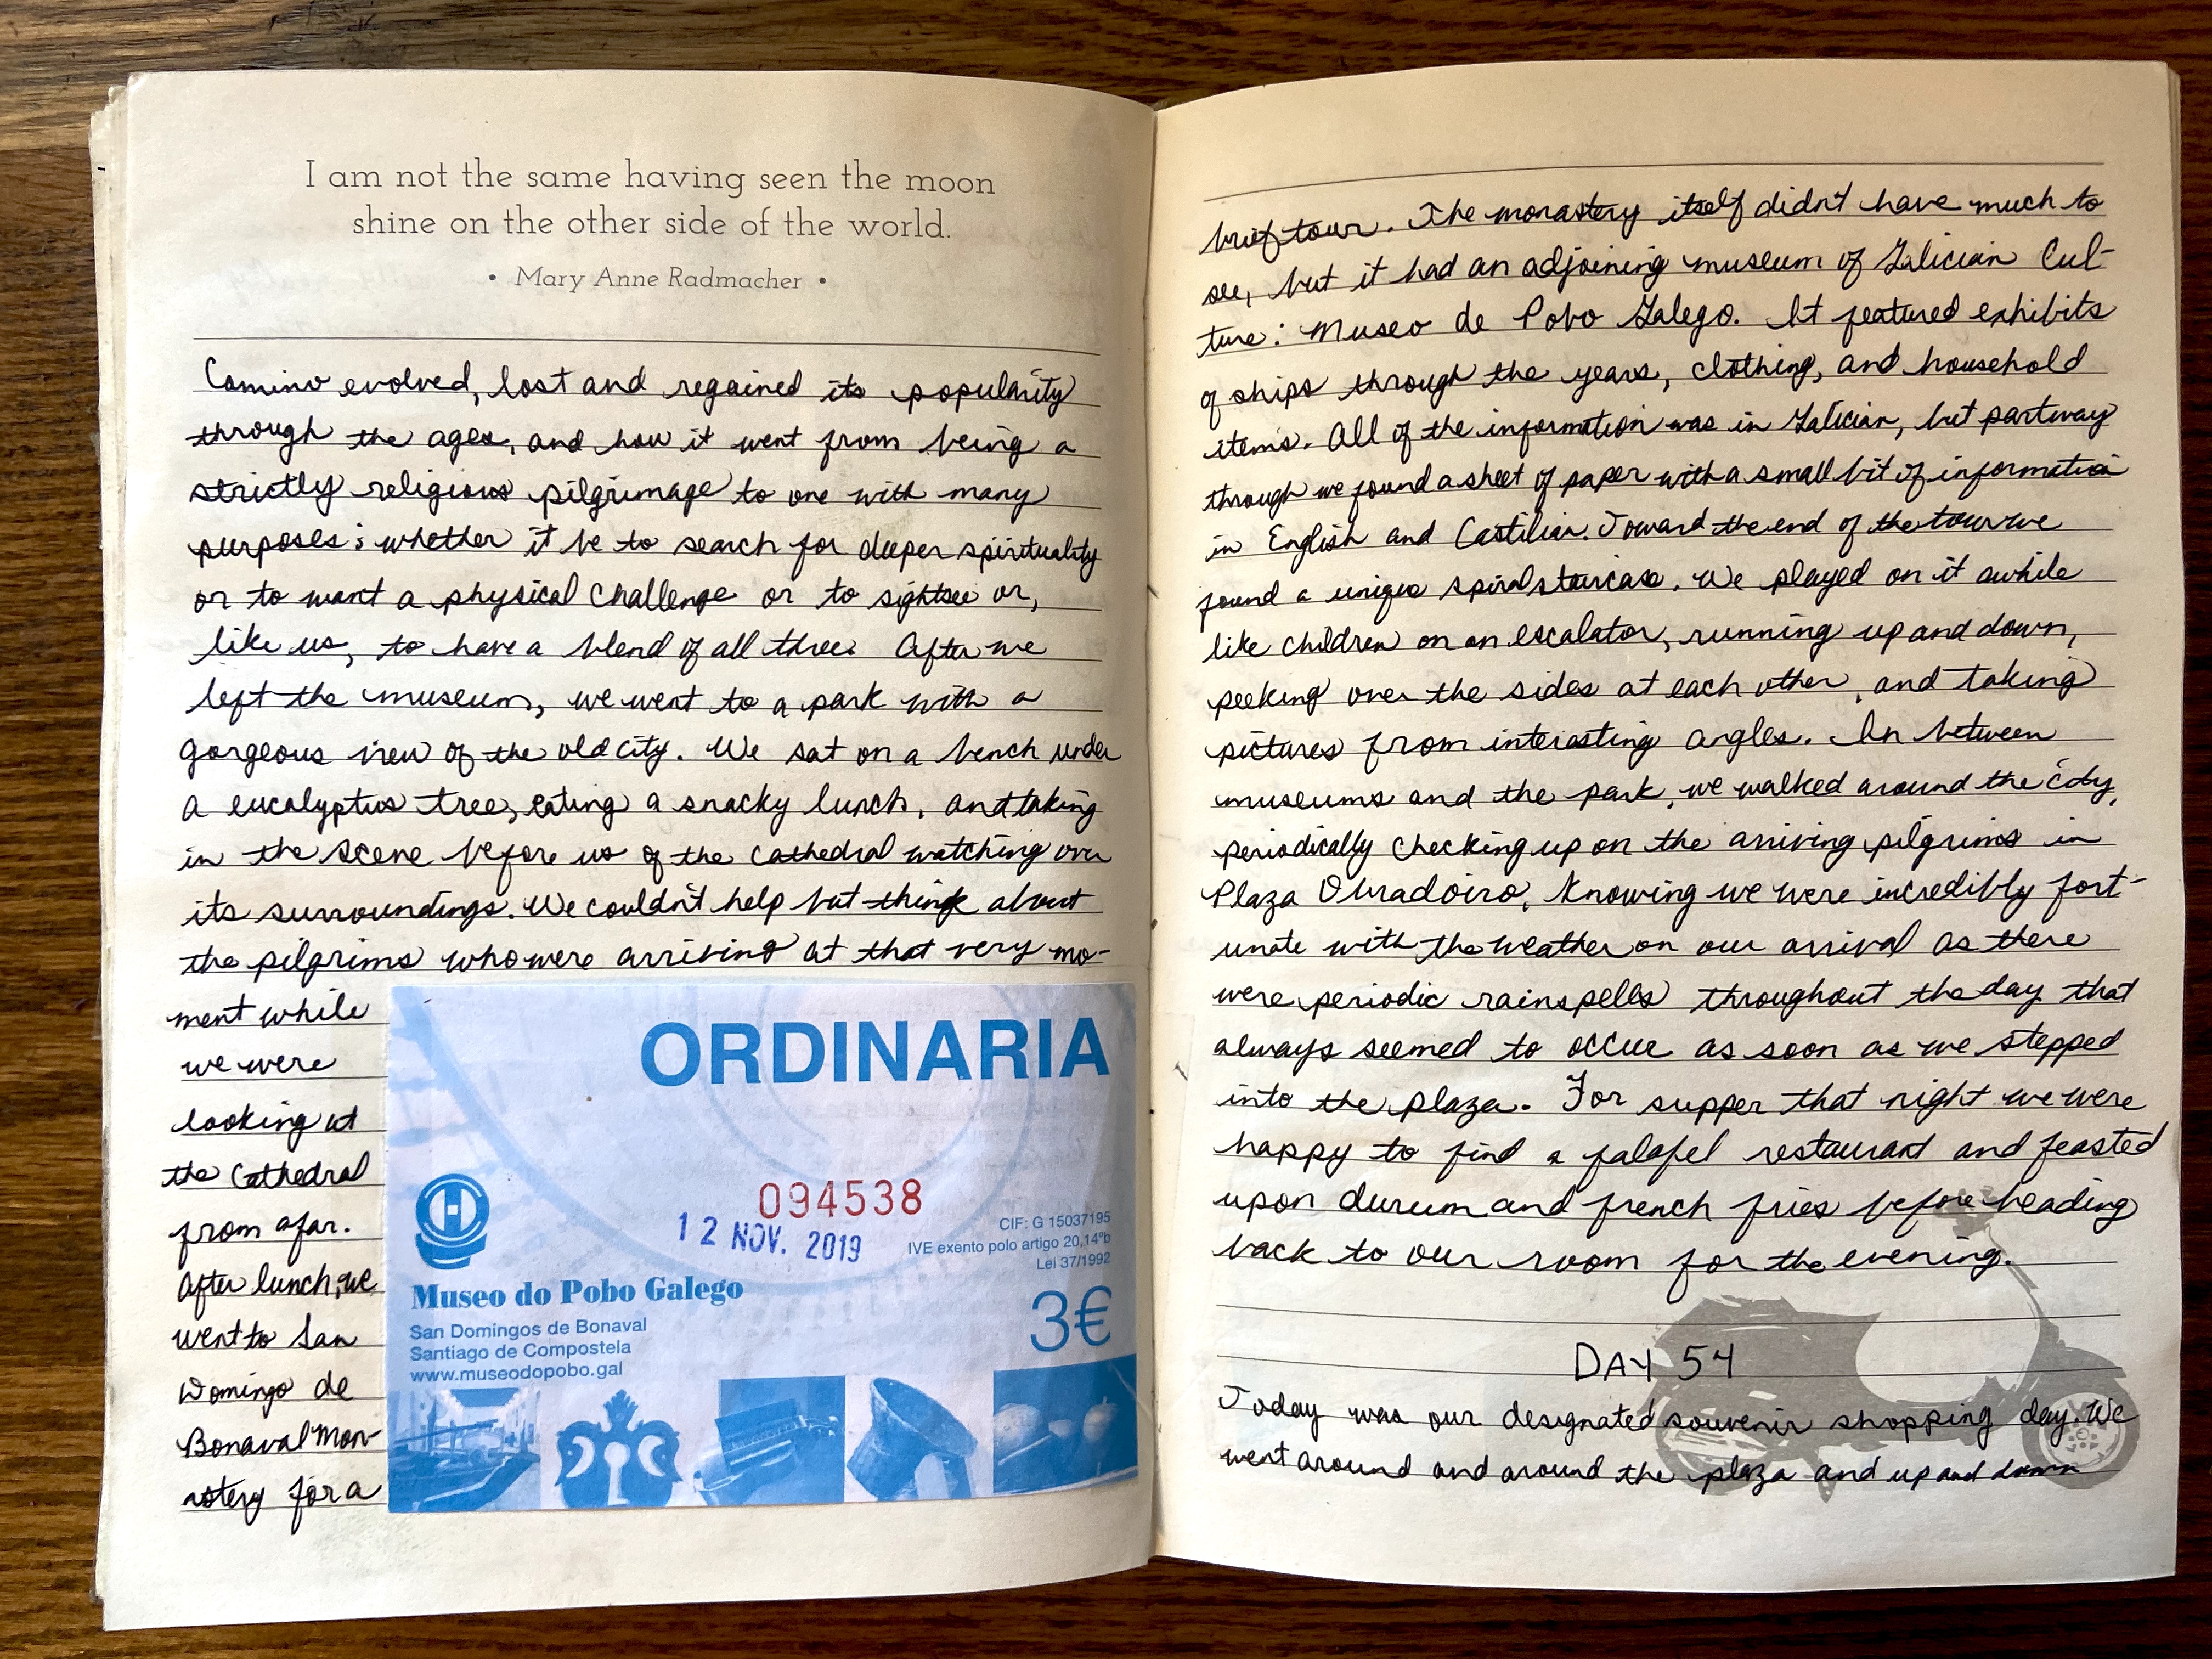 I am not the same having seen the moon
shine on the other side of the world.
• Mary Anne Radmacher •
Camino evolved, lost and regained its popularity
through the ages, and how it went from being a
strictly religious pilgrimage to one with many
purposes: whether it be to search for deeper spirituality
or to want a physical challenge or to sightsee or,
like us, to have a blend of all three. After we
left the museum, we went to a park with a
gorgeous view of the old city. We sat on a bench under
a eucalyptus tree, eating a snacky lunch, and taking
in the scene before us of the cathedral watching over
its surroundings. We couldn't help but think about
the pilgrims who were arriving at that very mo-
ment while
we were
looking at
the Cathedral
from afar.
After lunch, we
went to San
Domingo de
Bonaval Mon-
astery for a
ORDINARIA
094538
12 NOV. 2019
CIF: G 15037195
IVE exento polo artigo 20,14ºb
Lei 37/1992
Museo do Pobo Galego
San Domingos de Bonaval
Santiago de Compostela
www.museodopobo.gal
3€
brief tour. The monastery itself didn't have much to
see, but it had an adjoining museum of Galician Cul-
ture: Museo de Pobo Galego. It featured exhibits
of ships through the years, clothing, and household
items. All of the information was in Galician, but partway
through we found a sheet of paper with a small bit of information
in English and Castilian. Toward the end of the tour we
found a unique spiral staircase. We played on it awhile
like children on an escalator, running up and down,
peeking over the sides at each other, and taking
pictures from interesting angles. In between
museums and the park, we walked around the city,
periodically checking up on the arriving pilgrims in
Plaza Obradoiro, knowing we were incredibly fort-
unate with the weather on our arrival as there
were periodic rainspells throughout the day that
always seemed to occur as soon as we stepped
into the plaza. For supper that night we were
happy to find a falafel restaurant and feasted
upon durum and french fries before heading
back to our room for the evening.
DAY 54
Today was our designated souvenir shopping day. We
went around and around the plaza and up and down